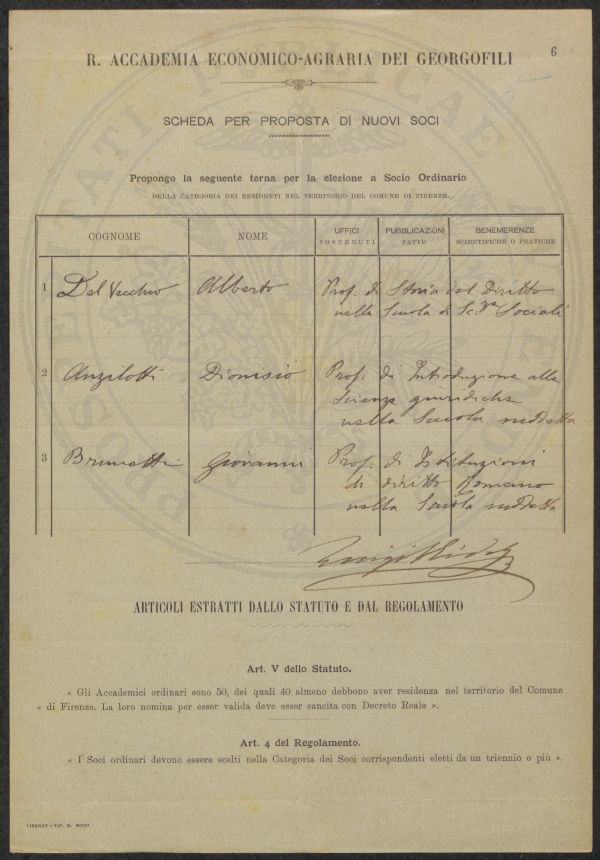 6
R. ACCADEMIA ECONOMICO-AGRARIA DEI GEORGOFILI
SCHEDA PER PROPOSTA DI NUOVI SOCI
Propongo la seguente terna per la elezione a Socio Ordinario
DELLA CATEGORIA DEI RESIDENTI NEL TERRITORIO DEL COMUNE DI FIRENZE.
COGNOME NOME UFFICI SOSTENUTI PUBBLICAZIONI FATTE BENEMERENZE SCIENTIFICHE O PRATICHE
1 Del Vecchio Alberto Prof. di Storia del Diritto
nella Scuola di Sc. Sociali
2 Anzilotti Dionisio Prof. di Introduzione alle
Scienze giuridiche
nella Scuola suddetta
3 Brunetti Giovanni Prof. di Istituzioni
di diritto Romano
nella Scuola suddetta
Luigi
ARTICOLI ESTRATTI DALLO STATUTO E DAL REGOLAMENTO
Art. V dello Statuto.
« Gli Accademici ordinari sono 50, dei quali 40 almeno debbono aver residenza nel territorio del Comune
« di Firenze. La loro nomina per esser valida deve esser sancita con Decreto Reale ».
Art. 4 del Regolamento.
« I Soci ordinari devono essere scelti nella Categoria dei Soci corrispondenti eletti da un triennio o più ».
FIRENZE—TIP. M. RICCI